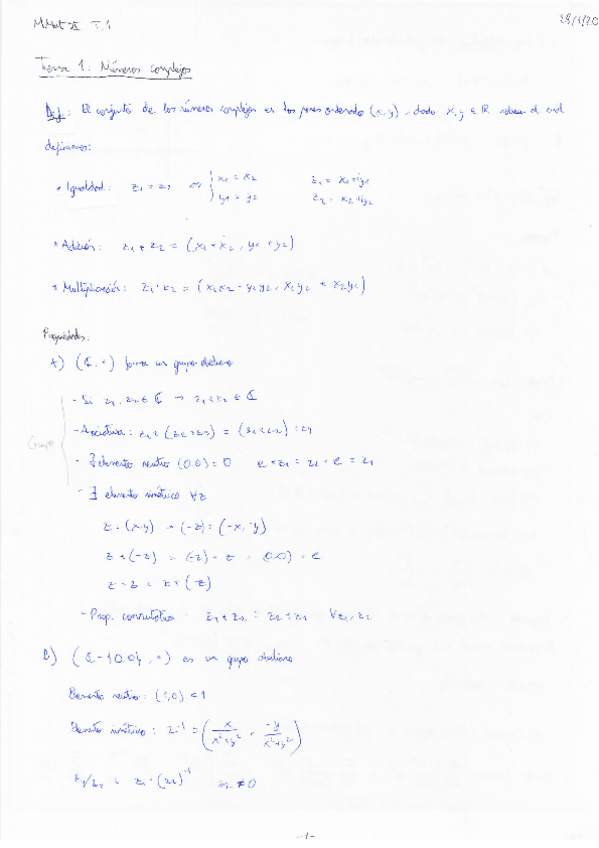 MMat II T.1
28/1/20
Tema 1: Números complejos
Def: El conjunto de los números complejos es los pares ordenados (x,y), dado x,y ∈ R sobre el cual
definimos:
• Igualdad: z₁ = z₂ ⇔ { x₁ = x₂ z₁ = x₁+iy₁
y₁ = y₂ z₂ = x₂+iy₂
• Adición: z₁ + z₂ = (x₁ + x₂, y₁ + y₂)
• Multiplicación: z₁·z₂ = (x₁x₂ - y₁y₂, x₁y₂ + x₂y₁)
Propiedades:
A) (ℂ, +) forma un grupo abeliano
Grupo
- Si z₁, z₂ ∈ ℂ → z₁+z₂ ∈ ℂ
- Asociativa: z₁+(z₂+z₃) = (z₁+z₂)+z₃
- ∃ elemento neutro (0,0) = 0 e+z₁ = z₁+e = z₁
- ∃ elemento simétrico ∀z
z = (x,y) → (-z) = (-x,-y)
z+(-z) = (-z)+z = (0,0) = e
z-z = z+(-z)
- Prop. conmutativa z₁+z₂ = z₂+z₁ ∀z₁,z₂
B) (ℂ-{0,0}, ·) es un grupo abeliano
Elemento neutro: (1,0) = 1
Elemento simétrico: z⁻¹ = (x/(x²+y²), -y/(x²+y²))
z₁/z₂ = z₁·(z₂)⁻¹ z₂ ≠ 0
-1-